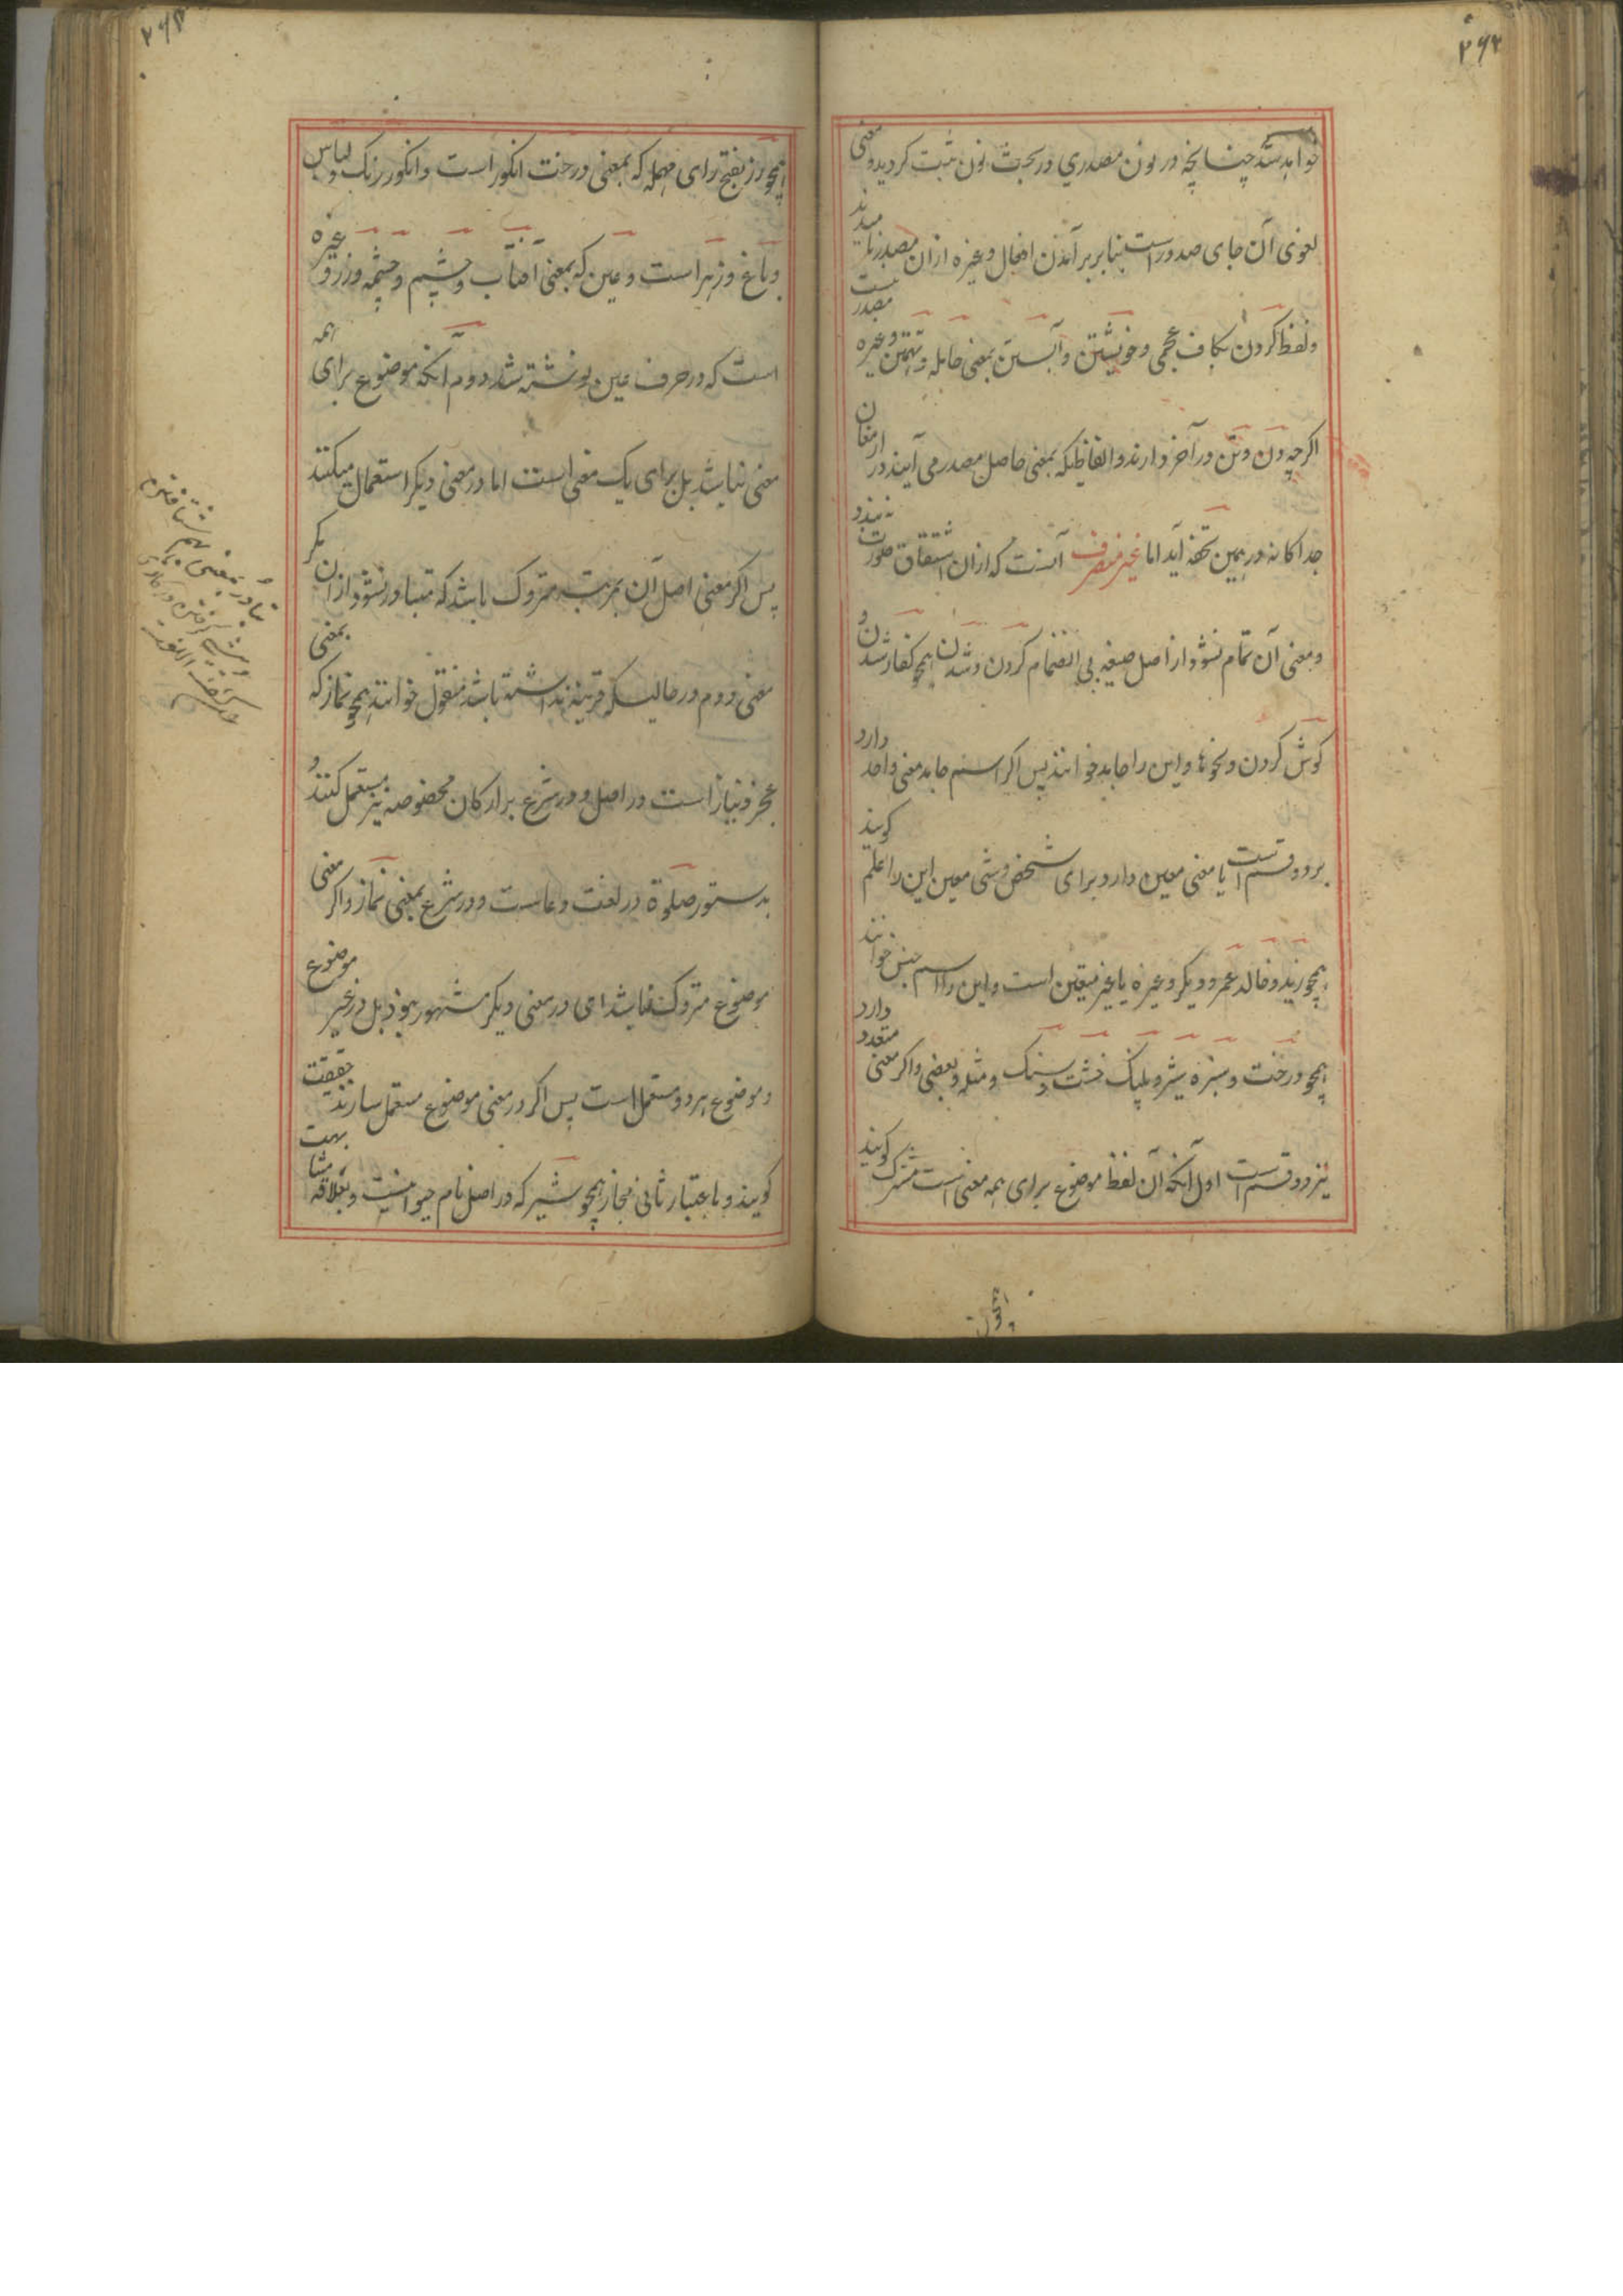 ۲۶۴
خواهد شد چنانچه در نون مصدری در بحث نون ثبت گردیده و معنی
لغوی آن جای صدور است بنابر برآمدن افعال و غیره ازان مصدر نامیدند
و لفظ گردن بکاف عجمی و خویشتن و آبستن بمعنی حامله و تهمتن و غیره مصدر نیست
اگرچه دن و تن در آخر دارند و الفاظیکه بمعنی حاصل مصدر می آیند در ارمغان
جداگانه درهمین تحفه آید اما غیر منصرف آنست که ازان اشتقاق صورت نه بندد
و معنی آن تمام نشود از اصل صیغه بی انضمام کردن و شدن همچو گفار شدن و
گوش کردن و نحوها و این را جامد خوانند پس اگر اسم جامد معنی واحد دارد
بر دو قسم است یا معنی معین دارد برای شخص و شی معین این را علم گویند
همچو زید و خالد عمرو و بکر و غیره یا غیر متعین است و این را اسم جنس خوانند
همچو درخت و سبزه شیر و پلنگ خشت و سنگ و مثله و بعضی و اگر معنی متعدد دارد
نیز دو قسم است اول آنکه آن لفظ موضوع برای همه معنی است مشترک گویند
همچو رز
۲۶۵
همچو رز بفتح رای مهمله که بمعنی درخت انگور است و انگور رنگ و لباس
و باغ و زهر است و عین که بمعنی آفتاب و چشم و چشمه و زر و غیره
است که در حرف عین نوشته شد دوم آنکه موضوع برای همه
معنی نباشد بل برای یک معنی است اما در معنی دیگر استعمال میکنند
پس اگر معنی اصل آن بمرتبه متروک باشد که متبادر نشود ازان مگر
معنی دوم در حالیکه قرینه نداشته باشد منقول خوانند همچو نماز که بمعنی
عجز و نیاز است در اصل و در شرع بر ارکان مخصوصه نیز مستعمل کنند و
بدستور صلوة در لغت دعاست و در شرع بمعنی نماز و اگر معنی
موضوع متروک نباشد امی در معنی دیگر مشهور بود بل در غیر موضوع
و موضوع هر دو مستعمل است پس اگر در معنی موضوع مستعمل سازند حقیقت
گویند و باعتبار ثانی مجاز همچو شیر که در اصل نام حیوانیست و بعلاقه مشابهت
تبادر بمعنی بهم شتافتن